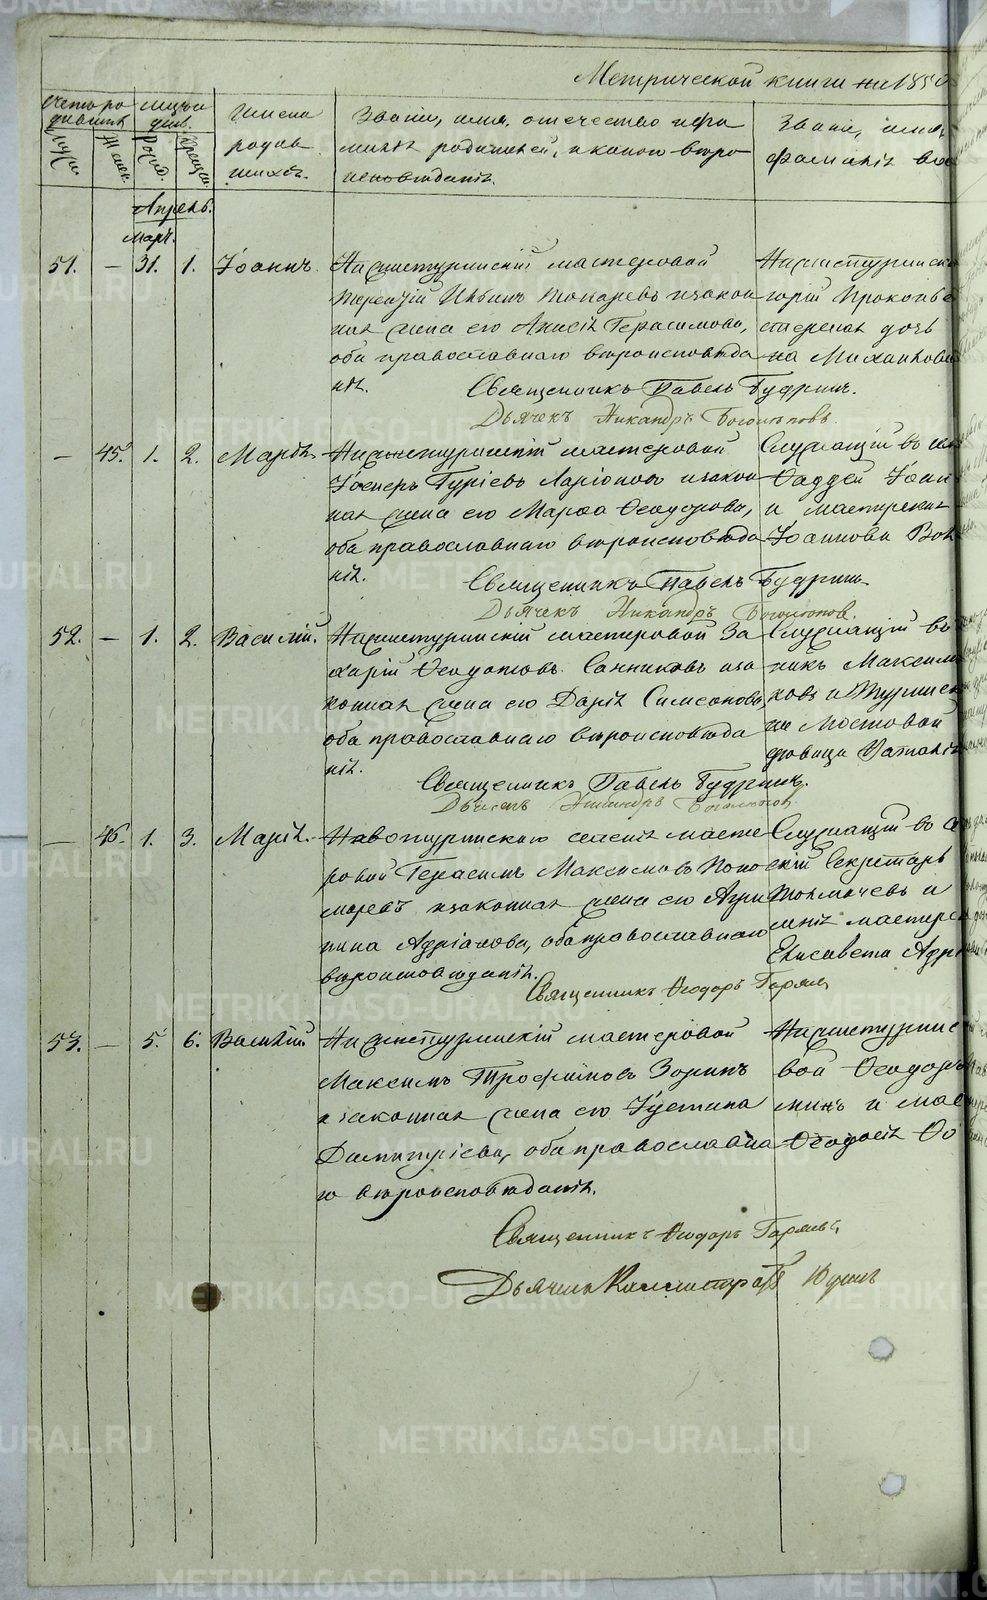 Метрической книги на 1850
Счетъ ро
дившихся
Муж.
Жен.
Мѣсяцъ и
день.
Рожд.
Крещен.
Имена
родив
шихся.
Званіе, имя, отечество и фа
милія родителей, и какого вѣро
исповѣданія.
Званіе, имя,
фамилія вос
Апрель.
Март.
51. — 31. 1. Іоаннъ.
Нижнетуринскій мастеровой
Терентій Ильинъ Токаревъ и закон
ная жена его Анисія Герасимова,
оба православнаго вѣроисповѣда
нія.
Священникъ Павелъ Будринъ.
Дьячекъ Никандръ Боголѣповъ.
Нижнетуринск
горій Прокопье
стерская дочь
на Михаилова
— 45. 1. 2. Марѳа.
Нижнетуринскій мастеровой
Гуріевъ Ларіоновъ и закон
ная жена его Марѳа Ѳеодорова,
оба православнаго вѣроисповѣда
нія.
Священникъ Павелъ Будринъ.
Дьячекъ Никандръ Боголѣповъ.
Служащій въ
Ѳаддей Іоан
и мастерская
Іоаннова
52. — 1. 2. Василій.
Нижнетуринскій мастеровой За
харій Ѳеодотовъ Санниковъ и за
конная жена его Дарія Симеонова,
оба православнаго вѣроисповѣда
нія.
Священникъ Павелъ Будринъ.
Дьячекъ Никандръ Боголѣповъ.
Служащій во
никъ Максим
ковъ и
Мостовой
довица Наталія
— 46. 1. 3. Марія.
Новотуринскаго селенія масте
ровой Герасимъ Максимовъ Поно
маревъ и законная жена его Агри
пина Адріанова, оба православнаго
вѣроисповѣданія.
Священникъ Ѳеодоръ Горяев
Служащій въ
скій Секретарь
Толмачевъ и
мастерс
Елисавета Адрі
53. — 5. 6. Василій
Нижнетуринскій мастеровой
Максимъ Трофимовъ Зоринъ
и законная жена его Іустина
Димитріева, оба православна
го вѣроисповѣданія.
Священникъ Ѳеодоръ Горяевъ
Дьячекъ Каллистратъ Юдинъ
Нижнетуринс
вой Ѳеодоръ
минъ и мас
Ѳеодосія Ѳо
METRIKI.GASO-URAL.RU